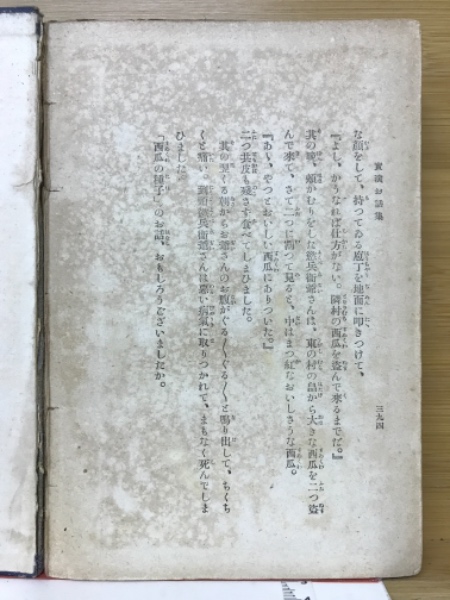 實演お話集
三九四
な顔をして、持つてゐる庖丁を地面に叩きつけて、
『よし、かうなれば仕方がない。隣村の西瓜を盜んで來るまでだ。』
其の晩、頬かむりをした慾兵衛爺さんは、東の村の畠から大きな西瓜を二つ盜
んで來て、さて二つに割つて見ると、中はまつ紅なおいしさうな西瓜。
『あゝ、やつとおいしい西瓜にありついた。』
二つ共皮も殘さず食べてしまひました。
其の翌る朝からお爺さんのお腹がぐる〳〵ぐる〳〵と鳴り出して、ちくちく
と痛い。慾兵衛爺さんは悪い病氣に取りつかれて、まもなく死んでしま
ひました。
「西瓜の種子」のお話、おもしろうございましたか。